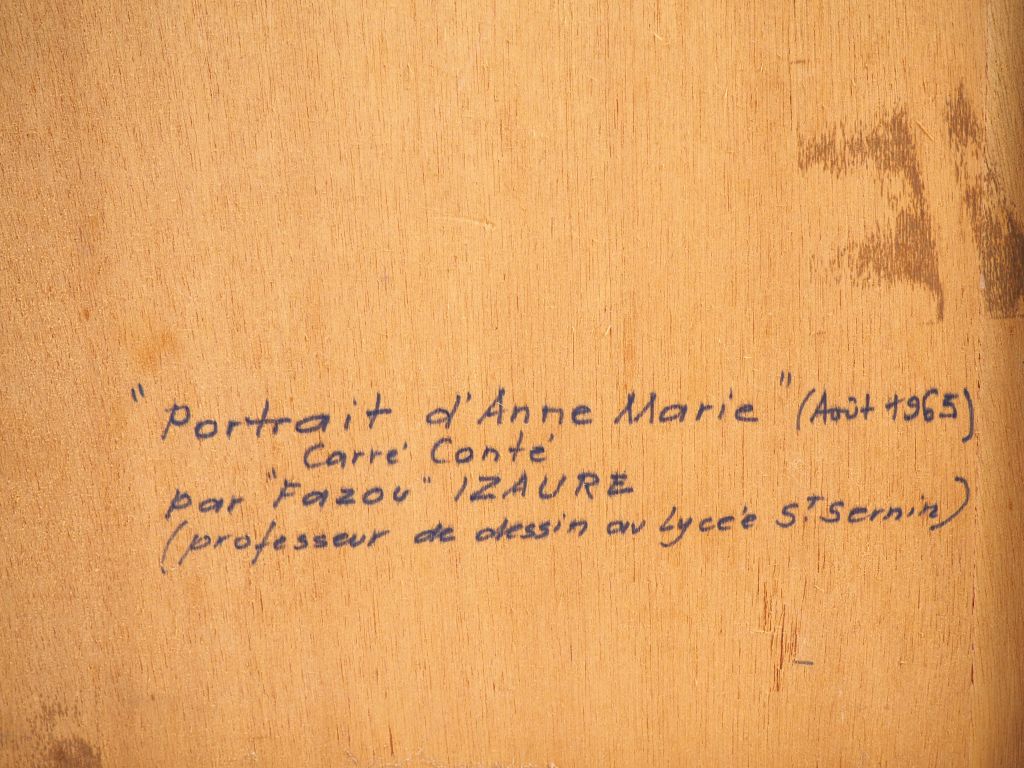 "Portrait d'Anne Marie" (Août 1965)
Carré Conté
par "Fazou" IZAURE
(professeur de dessin au Lycée St Sernin)